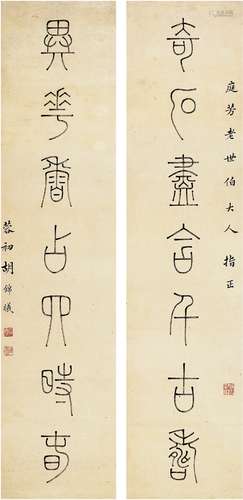 庭芳老世伯大人 指正
奇石盡含千古秀
異華香占四時春
蓉初胡錦儀